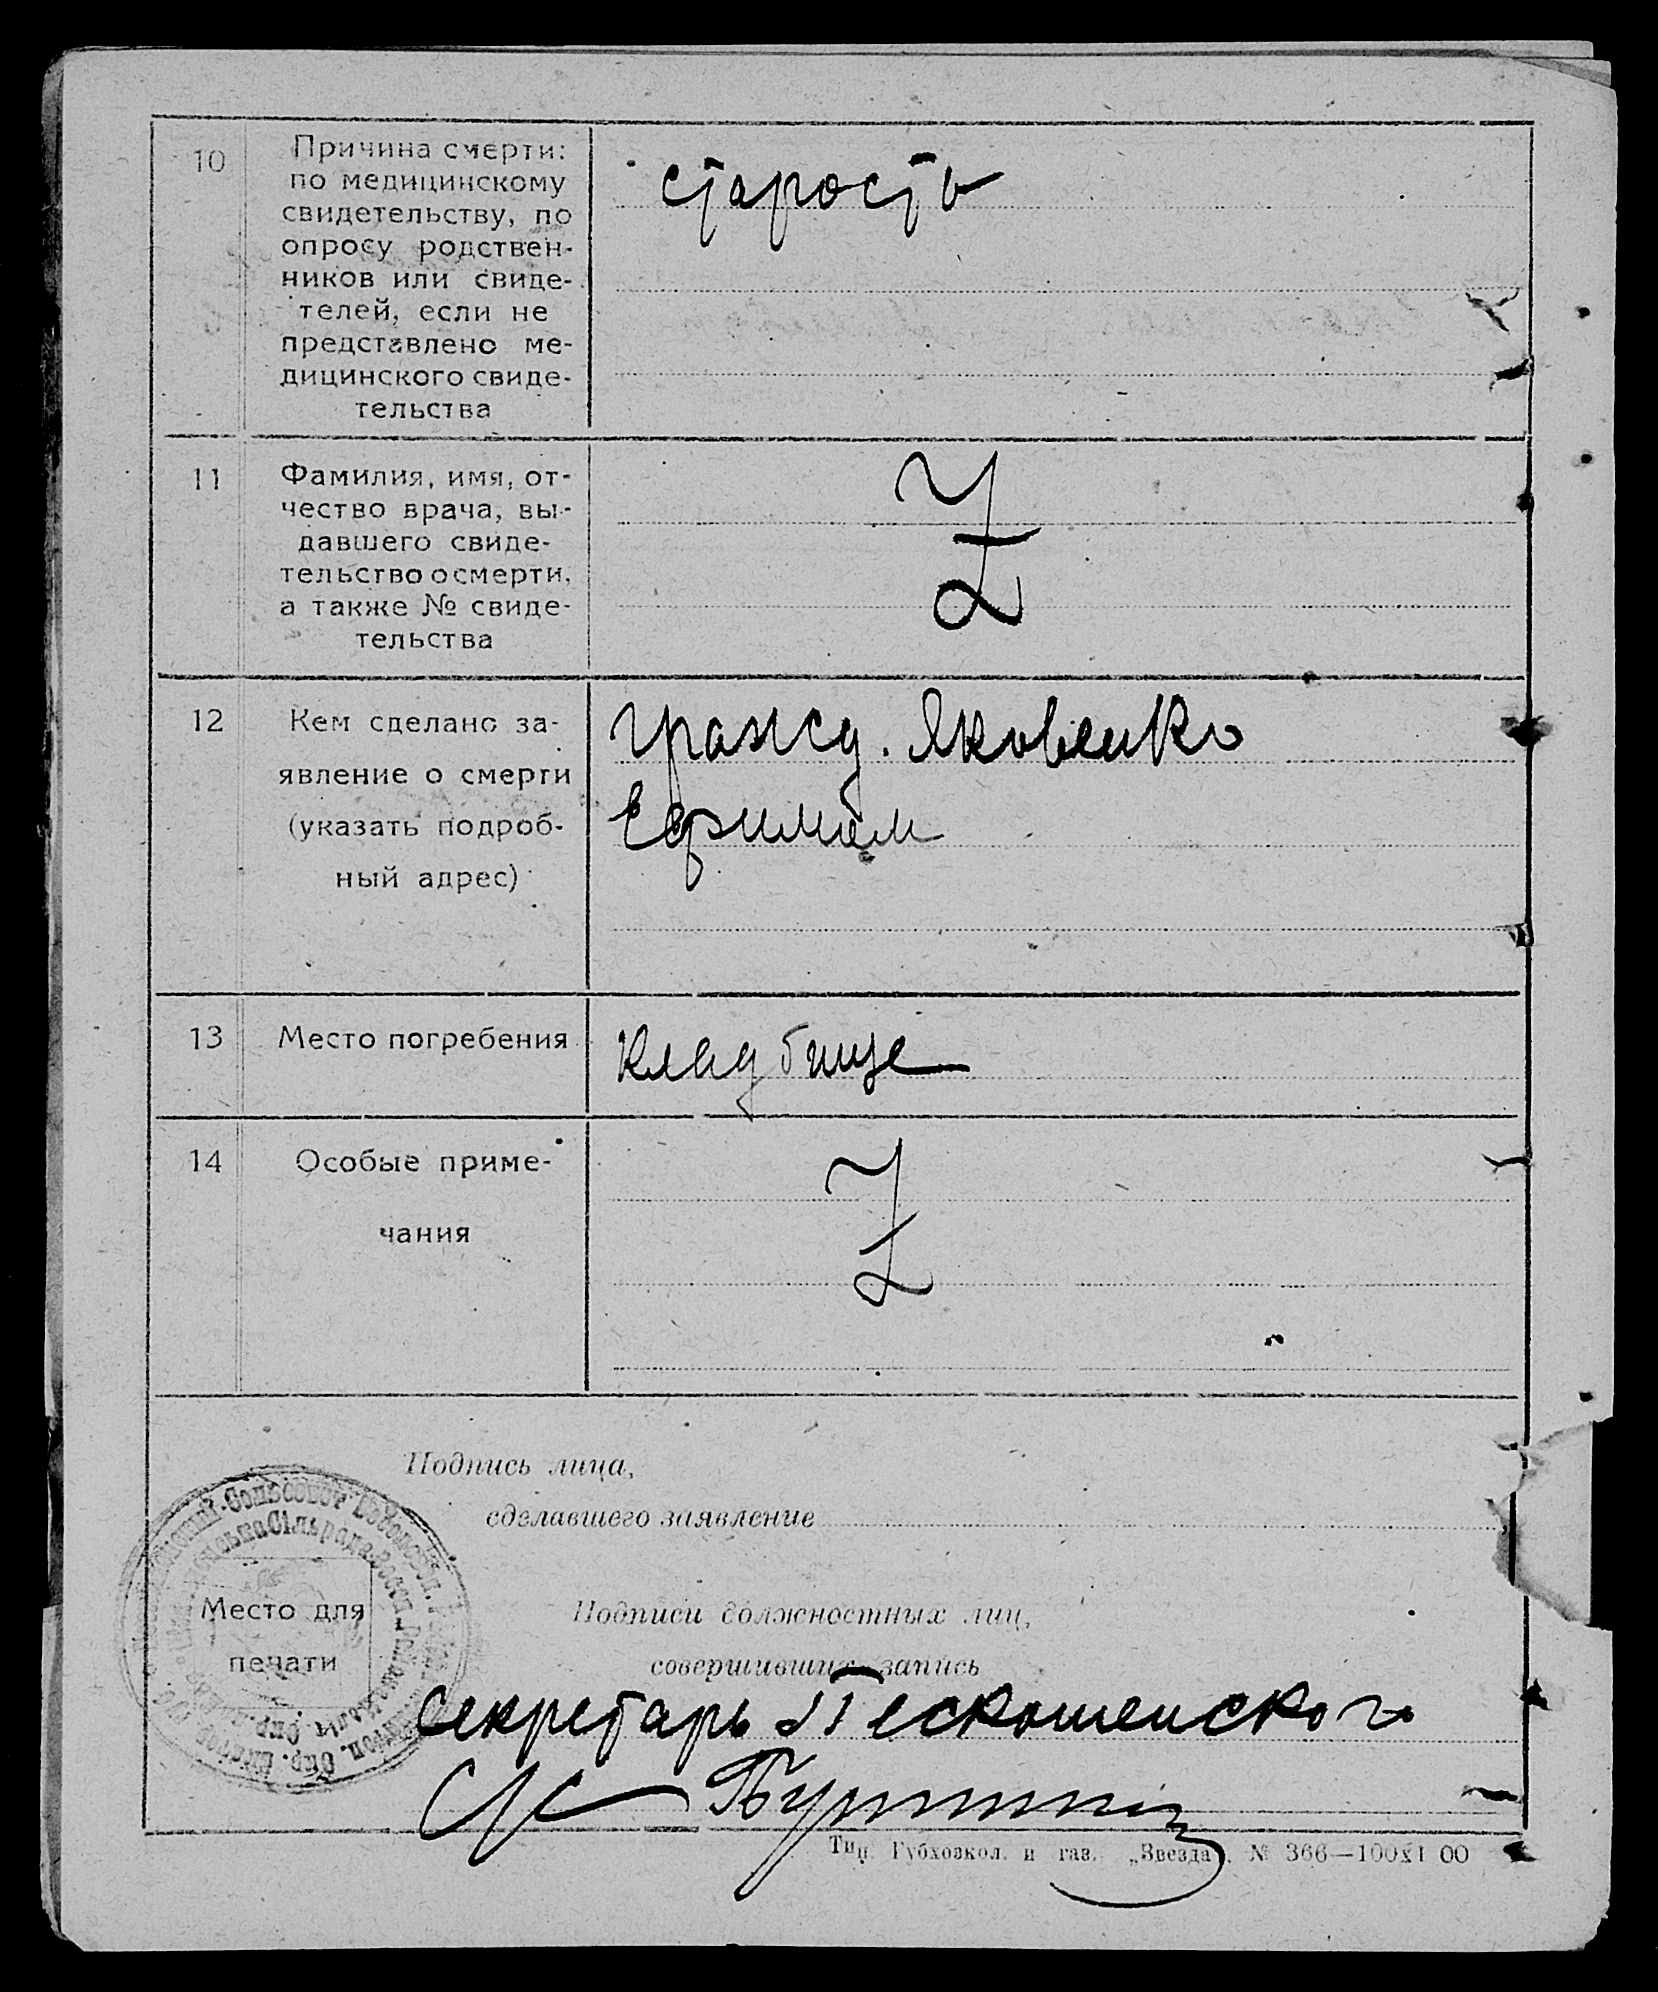 10
Причина смерти:
по медицинскому
свидетельству, по
опросу родствен-
ников или свиде-
телей, если не
представлено ме-
дицинского свиде-
тельства
старость
11
Фамилия, имя, от-
чество врача, вы-
давшего свиде-
тельство о смерти,
а также № свиде-
тельства
Z
12
Кем сделано за-
явление о смерти
(указать подроб-
ный адрес)
гражд. Яковенко
Ефимом
13
Место погребения
кладбище
14
Особые приме-
чания
Z
Подпись лица,
сделавшего заявление
Место для
печати
Подписи должностных лиц,
совершивших запись
секретарь
Тип. Губхозкол. и газ. „Звезда". № 366—100х1 00